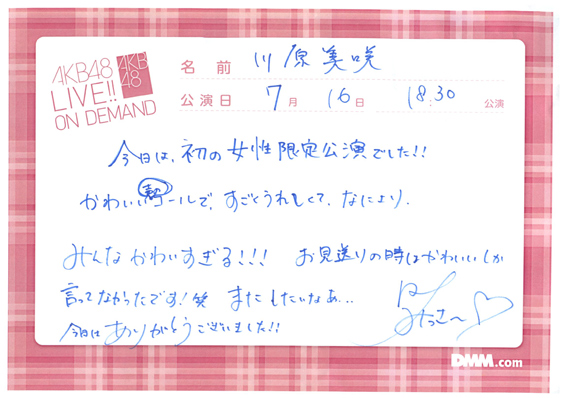 AKB48
LIVE!!
ON DEMAND
AKB
48
名前 川原美咲
公演日 7月 16日 18:30 公演
今日は、初の女性限定公演でした!!
かわいいコールで、すごくうれしくて、なにより、
みんなかわいすぎる!!! お見送りの時はかわいいしか
言ってなかったです!笑 またしたいなぁ...
今日はありがとうございました!!
みっきー♡
DMM.com